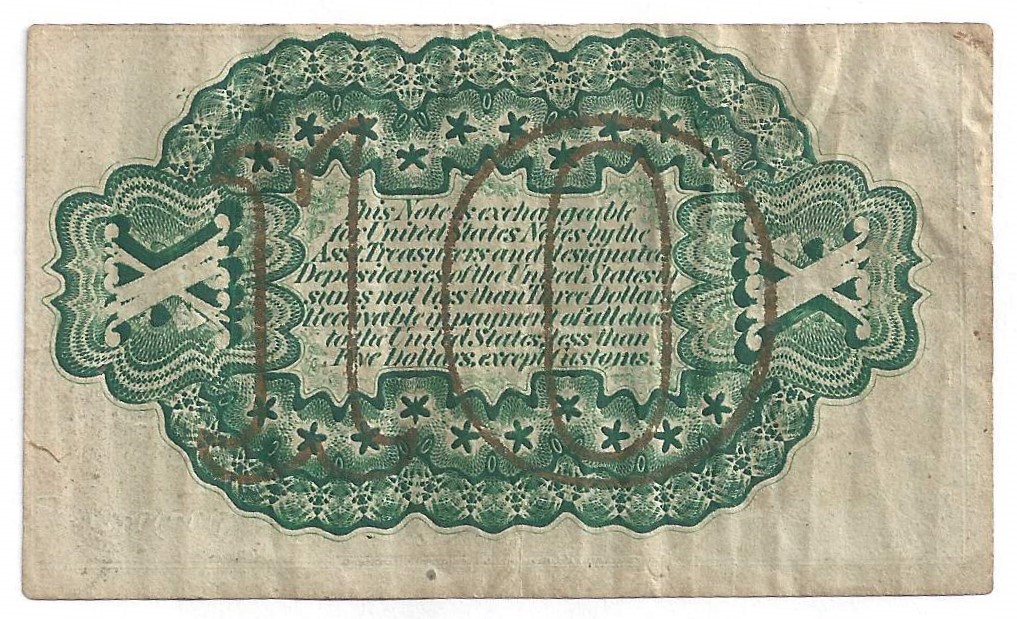 10
X
X
This Note is exchangeable
for United States Notes by the
Asst Treasurers and designated
Depositaries of the United States in
sums not less than Three Dollars
Receivable in payment of all dues
to the United States less than
Five Dollars, except Customs.